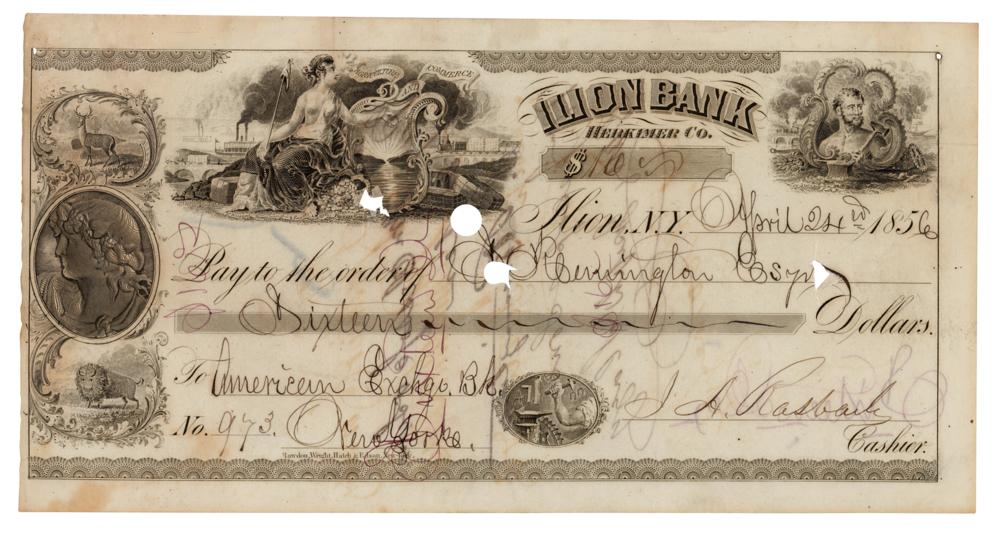 AGRICULTURE AND COMMERCE
ILION BANK
HERKIMER CO.
$
Ilion, N.Y. April 24th 1856
Pay to the order of E Remington Esqr
Sixteen Dollars.
To American Exchge. Bk.
No. 973. New York.
Cashier.
Rawdon, Wright, Hatch & Edson, New-York.